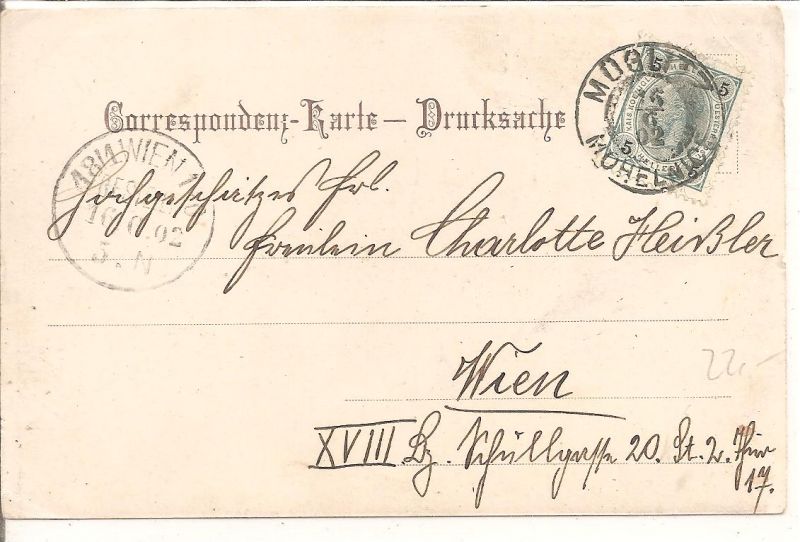 Correspondenz-Karte — Drucksache
MÜGLITZ
15
6
02
MOHELNICE
5
5
5
HELLER
18/1 WIEN
6.02
5.N
Hochgeschätzes Frl.
Freilein Charlotte Heißler
Wien
22.-
XVIII Bz. Schüllgasse 20. St. 2. Thür
17.